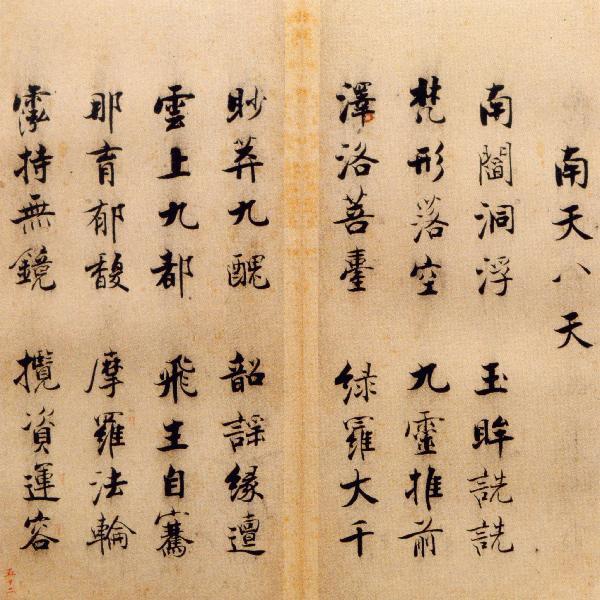 南天八天
南閻洞浮 玉眸詵詵
梵形落空 九靈推前
澤洛菩臺 緑羅大千
眇莽九醜 韶謠縁邅
雲上九都 飛生自騫
那育郁馥 摩羅法輪
霐持無鏡 攬資運容
五十二